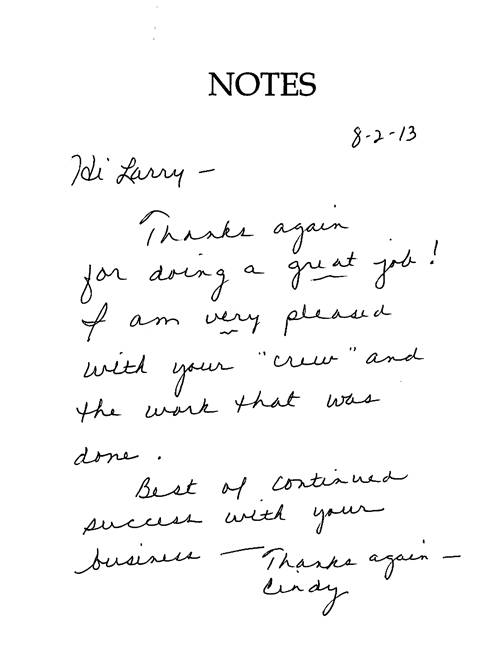 NOTES
8-2-13
Hi Larry –
Thanks again
for doing a great job!
I am very pleased
with your "crew" and
the work that was
done.
Best of continued
success with your
business — Thanks again —
Cindy